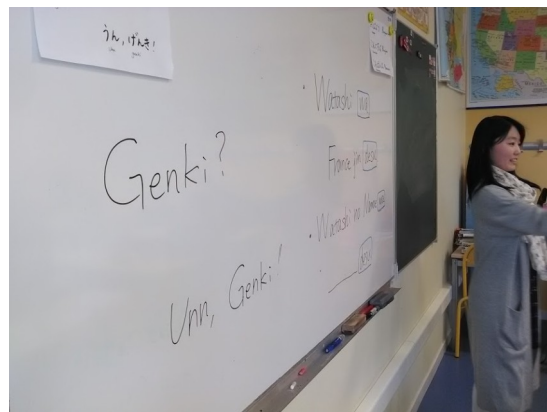 うん, げんき!
Genki?
Unn, Genki!
· Watashi wa
France jin desu
· Watashi no Namae wa
. ______ desu